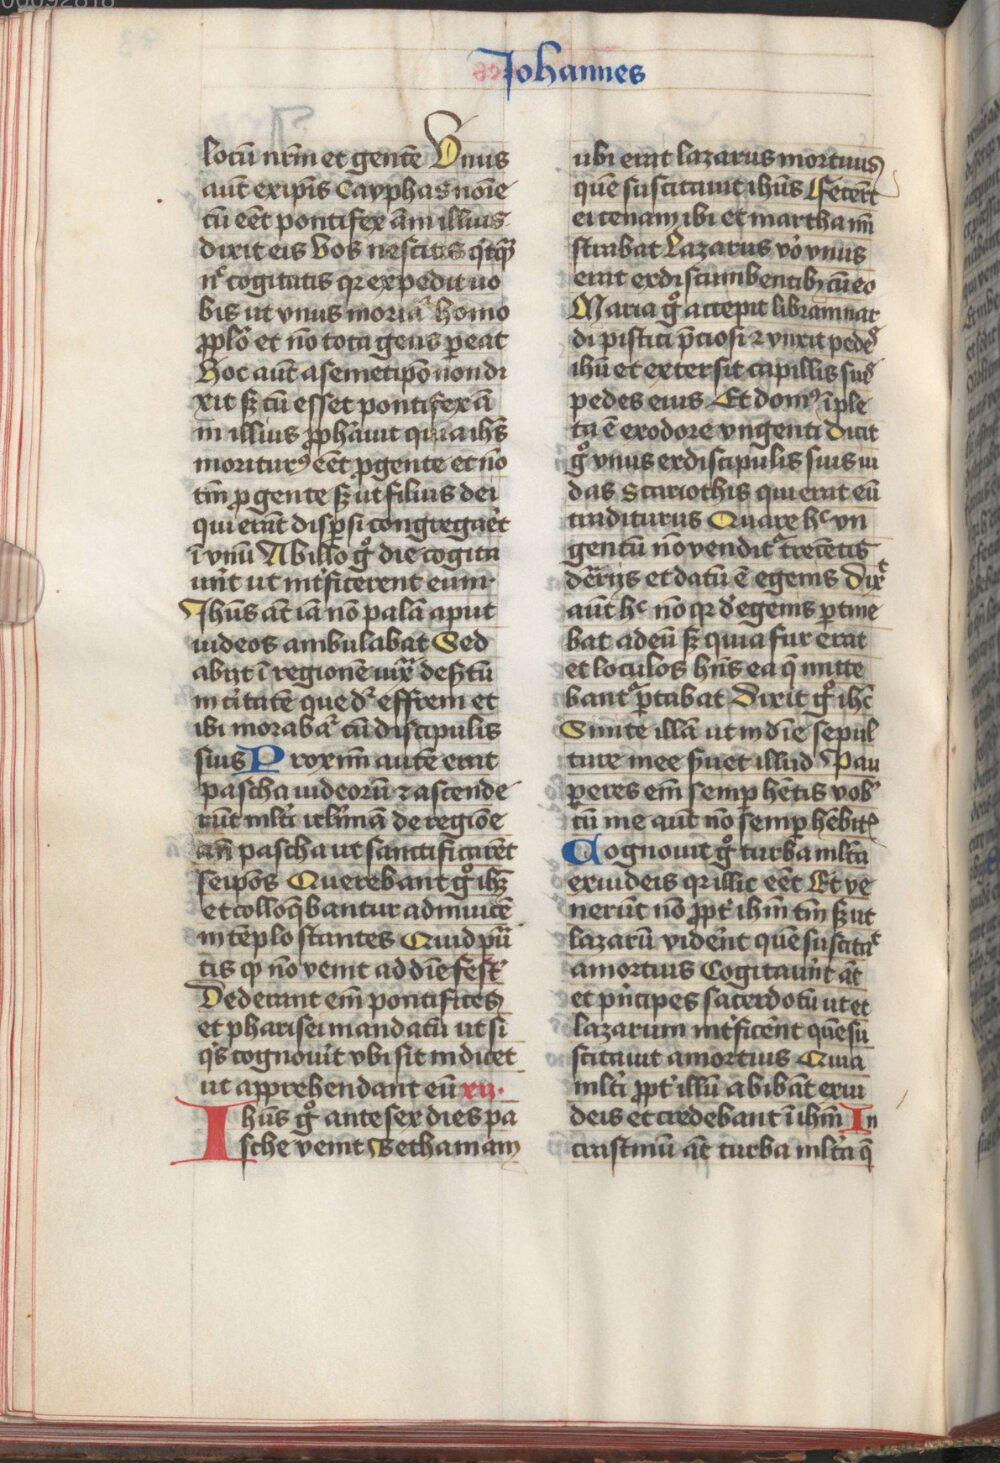 Johannes
locū nr̄m et gentē Vnus
aūt ex ip̄is Cayphas noīe
cū eēt pontifex āni illius
dixit eis Vos nescitis q̄tq̄
nͨ cogitatis qr expedit uo
bis ut vnus moriaͬ homo
ꝓ pl̄o et nō tota gens ꝑeat
Hoc aūt a semetip̄o non di
xit sꝫ cū esset pontifex ā
ni illius ꝓph̄auit quia ih̄s
moriturꝰ eēt ꝓ gente et nō
tm̄ ꝓ gente sꝫ ut filius dei
qui erāt disꝑsi congregar̄et
ī vnū Ab illo gͦ die cogita
uer̄t ut int̄ficerent eum·
Jhūs aūt iā nō palā aput
iudeos ambulabat Sed
abijt ī regionē iux̄ desertū
in ciuitatē que dͬ effrem et
ibi morabaͬ cū discipulis
suis Proximū autē erat
pascha iudeorū ⁊ ascende
rūt ml̄ti irl̄imā de regiōe
añ pascha ut sanctificarēt
seip̄os Querebant gͦ ihꝫ
et colloq̄bantur adinuicē
in tēplo stantes Quid putā
tis ꝙ nō venit ad diē fest
Dederant em̄ pontifices
et pharisei mandatū ut si
qͥs cognouīt vbi sit indicet
ut apprehendant eū xij·
Ihūs gͦ ante sex dies pa
sche venit Bethaniam
ubi erat lazarus mortuus
quē suscitauit ihūs Fecēr̄t
ei cenam ibi et martha mi
strabat Lazarus vͦo vnus
erat ex discumbentibꝫ cū eo
Maria gͦ accepit libram nar
di pistici p̄ciosi ⁊ vnxit pedes
ihū et extersit capillis suis
pedes eius Et domꝰ īple
ta ē ex odore vngenti Dicit
gͦ vnus ex discipulis suis iu
das Scariothis qui erat eū
traditurus Quare hͨ vn
gentū nō venditͬ trecētis
den̄rijs et datū ē egenis Dixͭ
aūt hͨ nō qr d̓ egenis ꝑtine
bat ad eū sꝫ quia fur erat
et loculos hn̄s ea q̄ mitte
bantͬ ꝑtabat Dixit gͦ ihc̄
Sinite illā ut in dīe sepul
ture mee s̓uet illud Pau
ꝑeres em̄ semꝑ hētis vobͥ
cū me aūt nō semꝑ hēbitͥ
Cognouit gͦ turba ml̄ta
ex iudeis qr illic eēt Et ve
nerūt nō ꝓpt̓ ihm̄ tm̄ sꝫ ut
lazarū vider̄nt quē suscitaͭ
a mortuis Cogitauer̄t aūt
et pͥncipes sacerdotū ut et
lazarum int̓ficer̄ent quē su
scitauit a mortuis Quia
ml̄ti ꝓpt̓ illū abibāt ex iu
deis et credebant ī ihm̄ In
crastinū aūt turba ml̄ta q̄